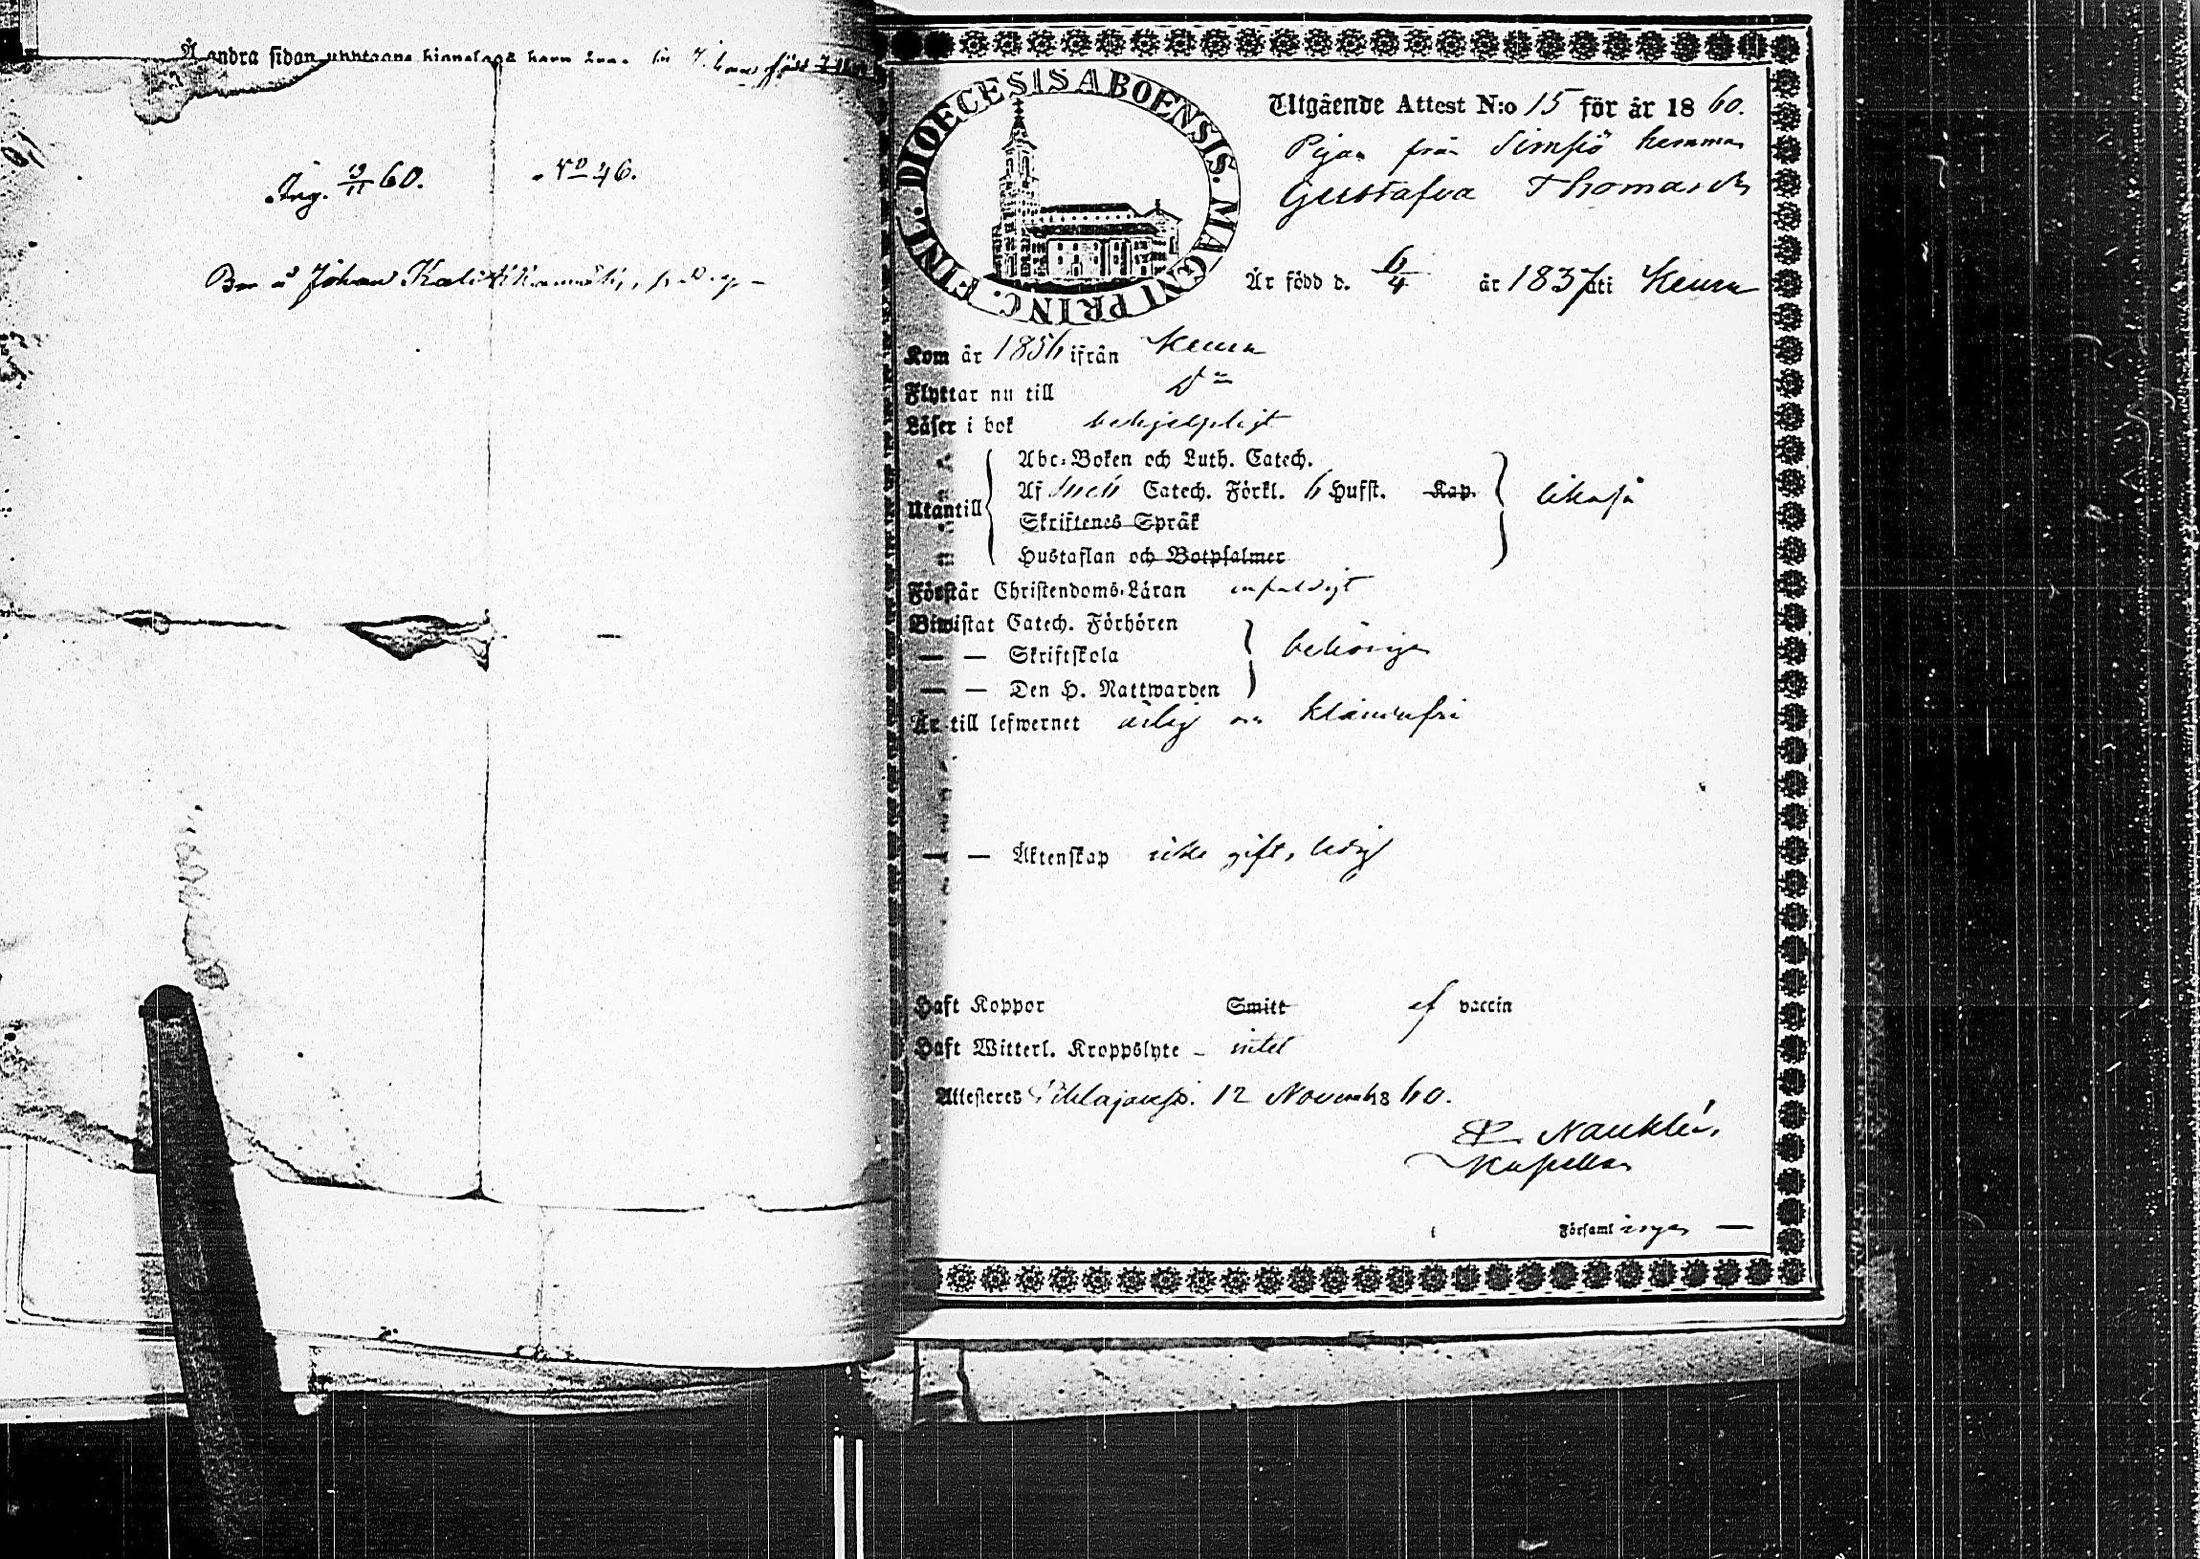 Å andra sidan upptagne hjonelags barn äro:
Ing. 19/11 60. No 46.
Johan
DIOECESIS ABOENSIS. MAGNI PRINC. FINL.
Utgående Attest N:o 15 för år 1860.
Pigan från Simsiö hemman
Gustafva Thomasdr
Är född d. 6/4 år 1837 uti Keuru
Kom år 1856 ifrån Keuru
Flyttar nu till Do
Läser i bok behjelpligt
Abc-Boken och Luth. Catech.
Utantill Af Catech. Förkl. 6 Hufst. Kap. likaså
Skriftenes Språk
Hustaflan och Botpsalmer
Förstår Christendoms-Läran enfaldigt
Biwistat Catech. Förhören
— — Skriftskola behörigen
— — Den H. Nattwarden
Är till lefwernet ärlig och klanderfri
— — Äktenskap icke gift, ledig
Haft Koppor Smitt af vaccin
Haft Witterl. Kroppslyte – intet
Attesteres Pihlajavesi. 12 Novemb. 1860.
Nauklér,
Kapellan
Församl ingen —